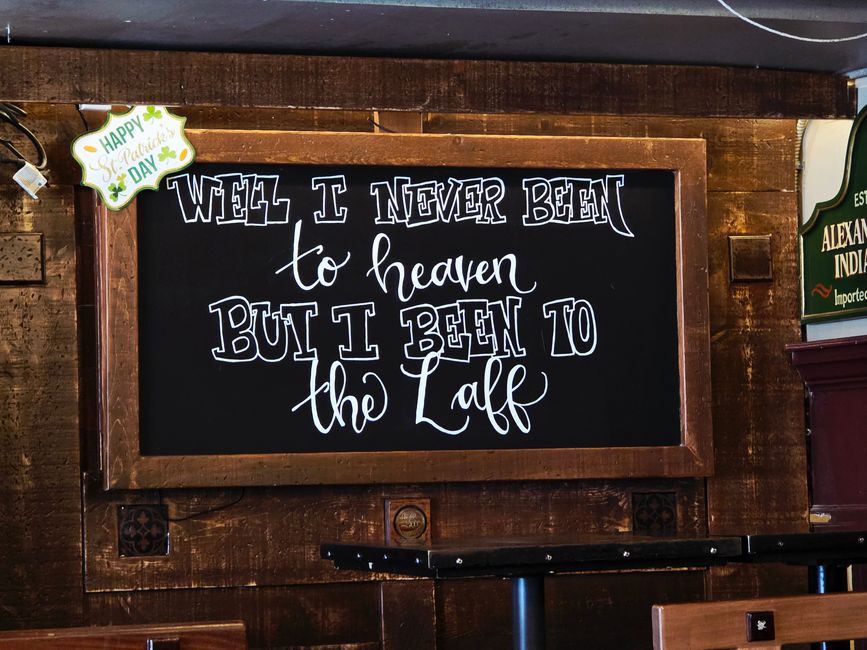 HAPPY
St. Patrick's
DAY
WELL I NEVER BEEN
to heaven
BUT I BEEN TO
the Laff
EST
ALEXAN
INDIA
Imported